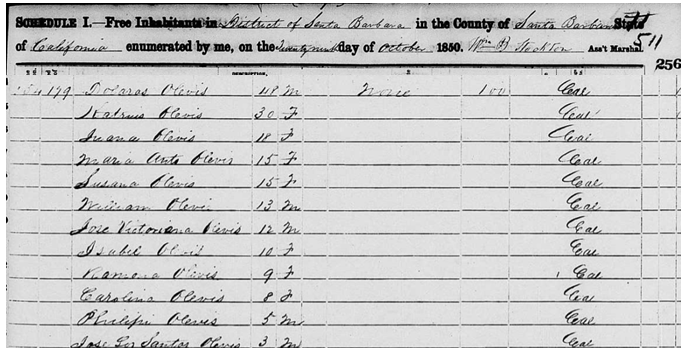 SCHEDULE I.—Free Inhabitants in District of Santa Barbara in the County of Santa Barbara State
of California enumerated by me, on the Twenty ninth day of October 1850. Wm B Stockton Ass't Marshal. 511
256
DESCRIPTION.
184 179 Dolores Olevis 48 M None 100 Cal
Olevis 30 F Cal
Juana Olevis 18 F Cal
Maria Anto Olevis 15 F Cal
Susana Olevis 15 F Cal
William Olevis 13 M Cal
Jose Victoriana Olevis 12 M Cal
Isabel Olevis 10 F Cal
Ramona Olevis 9 F Cal
Carolina Olevis 8 F Cal
Philipi Olevis 5 M Cal
Jose Los Santos Olevis 3 M Cal